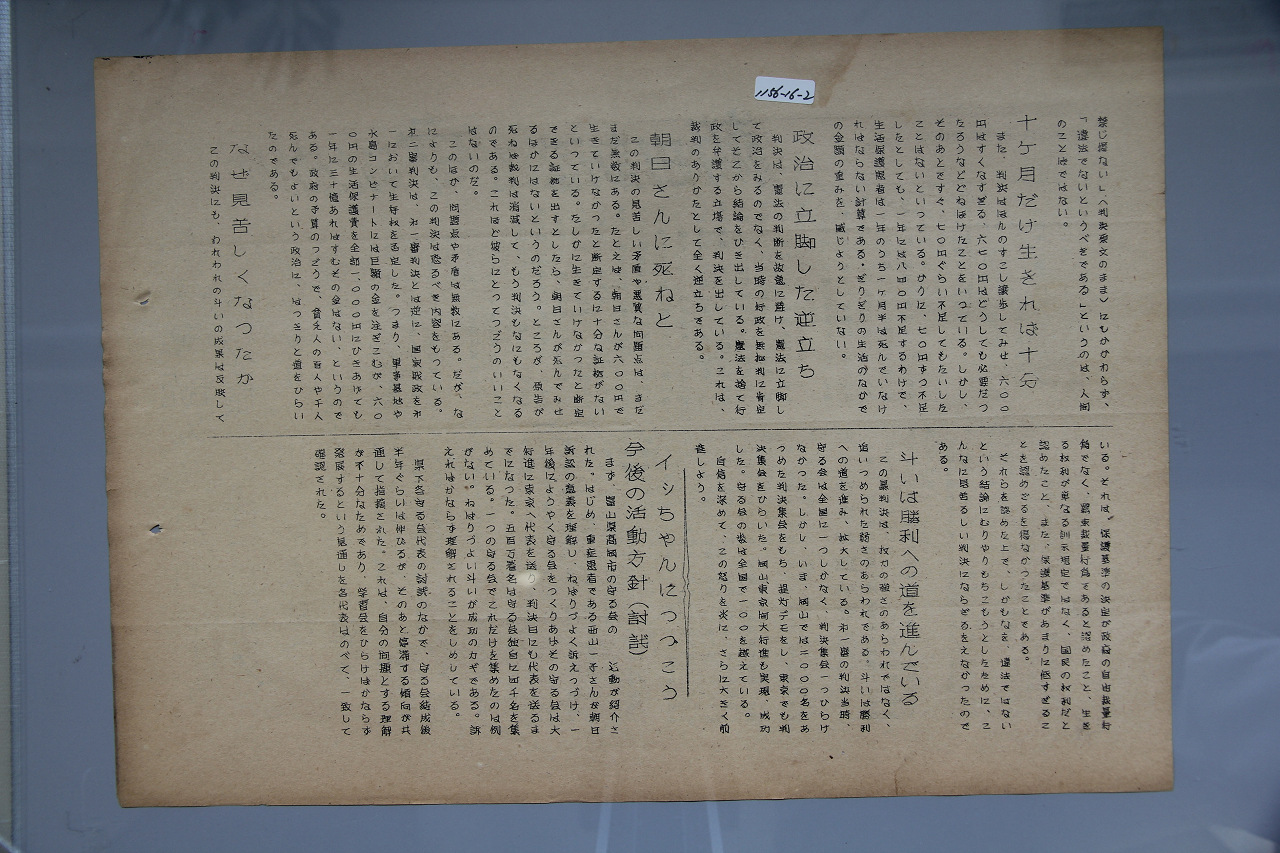 1156-16-2
禁じ得ない」(判決要文のまま)にもかかわらず、
「違法でないというべきである」というのは、人間
のことばではない。
十ヶ月だけ生きれば十分
また、判決はほんのすこし譲歩してみせ、六〇〇
円はすくなすぎる、六七〇円はどうしても必要だつ
たろうなどとねぼけたことをいつている。しかし、
そのあとすぐ、七〇円ぐらい不足してもたいした
ことはないといつている。かりに、七〇円ずつ不足
したとしても、一年には八四〇円不足するわけで、
生活保護患者は一年のうち一ヶ月半は死んでいなけ
ればならない計算である。ぎりぎりの生活のなかで
の金額の重みを、感じようとしていない。
政治に立脚した逆立ち
判決は、憲法の判断を故意に避け、憲法に立脚し
て政治をみるのでなく、当時の行政を無批判に肯定
してそこから結論をひき出している。憲法を捨て行
政を弁護する立場で、判決を出している。これは、
裁判のありかたとして全く逆立ちである。
朝日さんに死ねと
この判決の見苦しい矛盾や悪質な問題点は、まだ
まだ無数にある。たとえば、朝日さんが六〇〇円で
生きていけなかつたと断定するに十分な証拠がない
といつている。たしかに生きていけなかつたと断定
できる証拠を出すとしたら、朝日さんが死んでみせ
るほかにはないというのだろう。ところが、原告が
死ねば裁判は消滅して、もう判決もなにもなくなる
のである。これほど彼らにとつてつごうのいいこと
はないのだ。
このほか、問題点や矛盾は無数にある。だが、な
によりも、この判決は恐るべき内容をもつている。
才二審判決は、才一審判決とは逆に、国家財政をオ
一において生存权を否定した。つまり、軍事基地や
水島コンビナートには巨額の金を注ぎこむが、六〇
〇円の生活保護費を全部一、〇〇〇円にひきあげても
一年に三十億あればすむその金はない、というので
ある。政府の予算のつごうで、貧乏人の百人や千人
死んでもよいという政治に、はつきりと道をひらい
たのである。
なぜ見苦しくなつたか
この判決にも、われわれの斗いの成果は反映して
いる。それは、保護基準の決定が政府の自由裁量行
為でなく、覊束裁量行為であると認めたこと、生き
る权利が単なる訓示規定ではなく、国民の权利だと
認めたこと、また、保護基準があまりに低すぎるこ
とを認めざるを得なかつたことである。
それらを認めた上で、しかもなを、違法ではない
という結論にむりやりもちこもうとしたために、こ
んなに見苦るしい判決にならざるをえなかつたので
ある。
斗いは勝利への道を進んでいる
この暴判決は、权力の強さのあらわれではなく、
追いつめられた弱さのあらわれである。斗いは勝利
への道を進み、拡大している。才一審の判決当時、
守る会は全国に一つしかなく、判決集会一つひらけ
なかつた。しかし、いま、岡山では二〇〇〇名をあ
つめた判決集会をもち、提灯デモをし、東京でも判
決集会をひらいた。岡山東京間大行進も実現、成功
した。守る会の数は全国で一〇〇を越えている。
自信を深めて、この怒りを炎に、さらに大きく前
進しよう。
イツちやんにつづこう
今後の活動方針(討議)
まず、富山県高岡市の守る会の 動が紹介さ
れた。はじめ、重症患者である西山一子さんが朝日
訴訟の意義を理解し、ねばりづよく訴えつづけ、一
年後にようやく守る会をつくりあげその守る会は大
行進に東京へ代表を送り、判決日にも代表を送るま
でになつた。五百万署名は守る会独自に四千名を集
めている。一つの守る会でこれだけを集めたのは例
がない。ねばりづよい斗いが成功のカギである。訴
えればかならず理解されることをしめしている。
県下各守る会代表の討議のなかで、守る会結成後
半年ぐらいは伸びるが、そのあと停滞する傾向が共
通して指摘された。これは、自分の問題とする理解
が不十分なためであり、学習会をひらけばかならず
発展するという見通しを各代表はのべて、一致して
確認された。